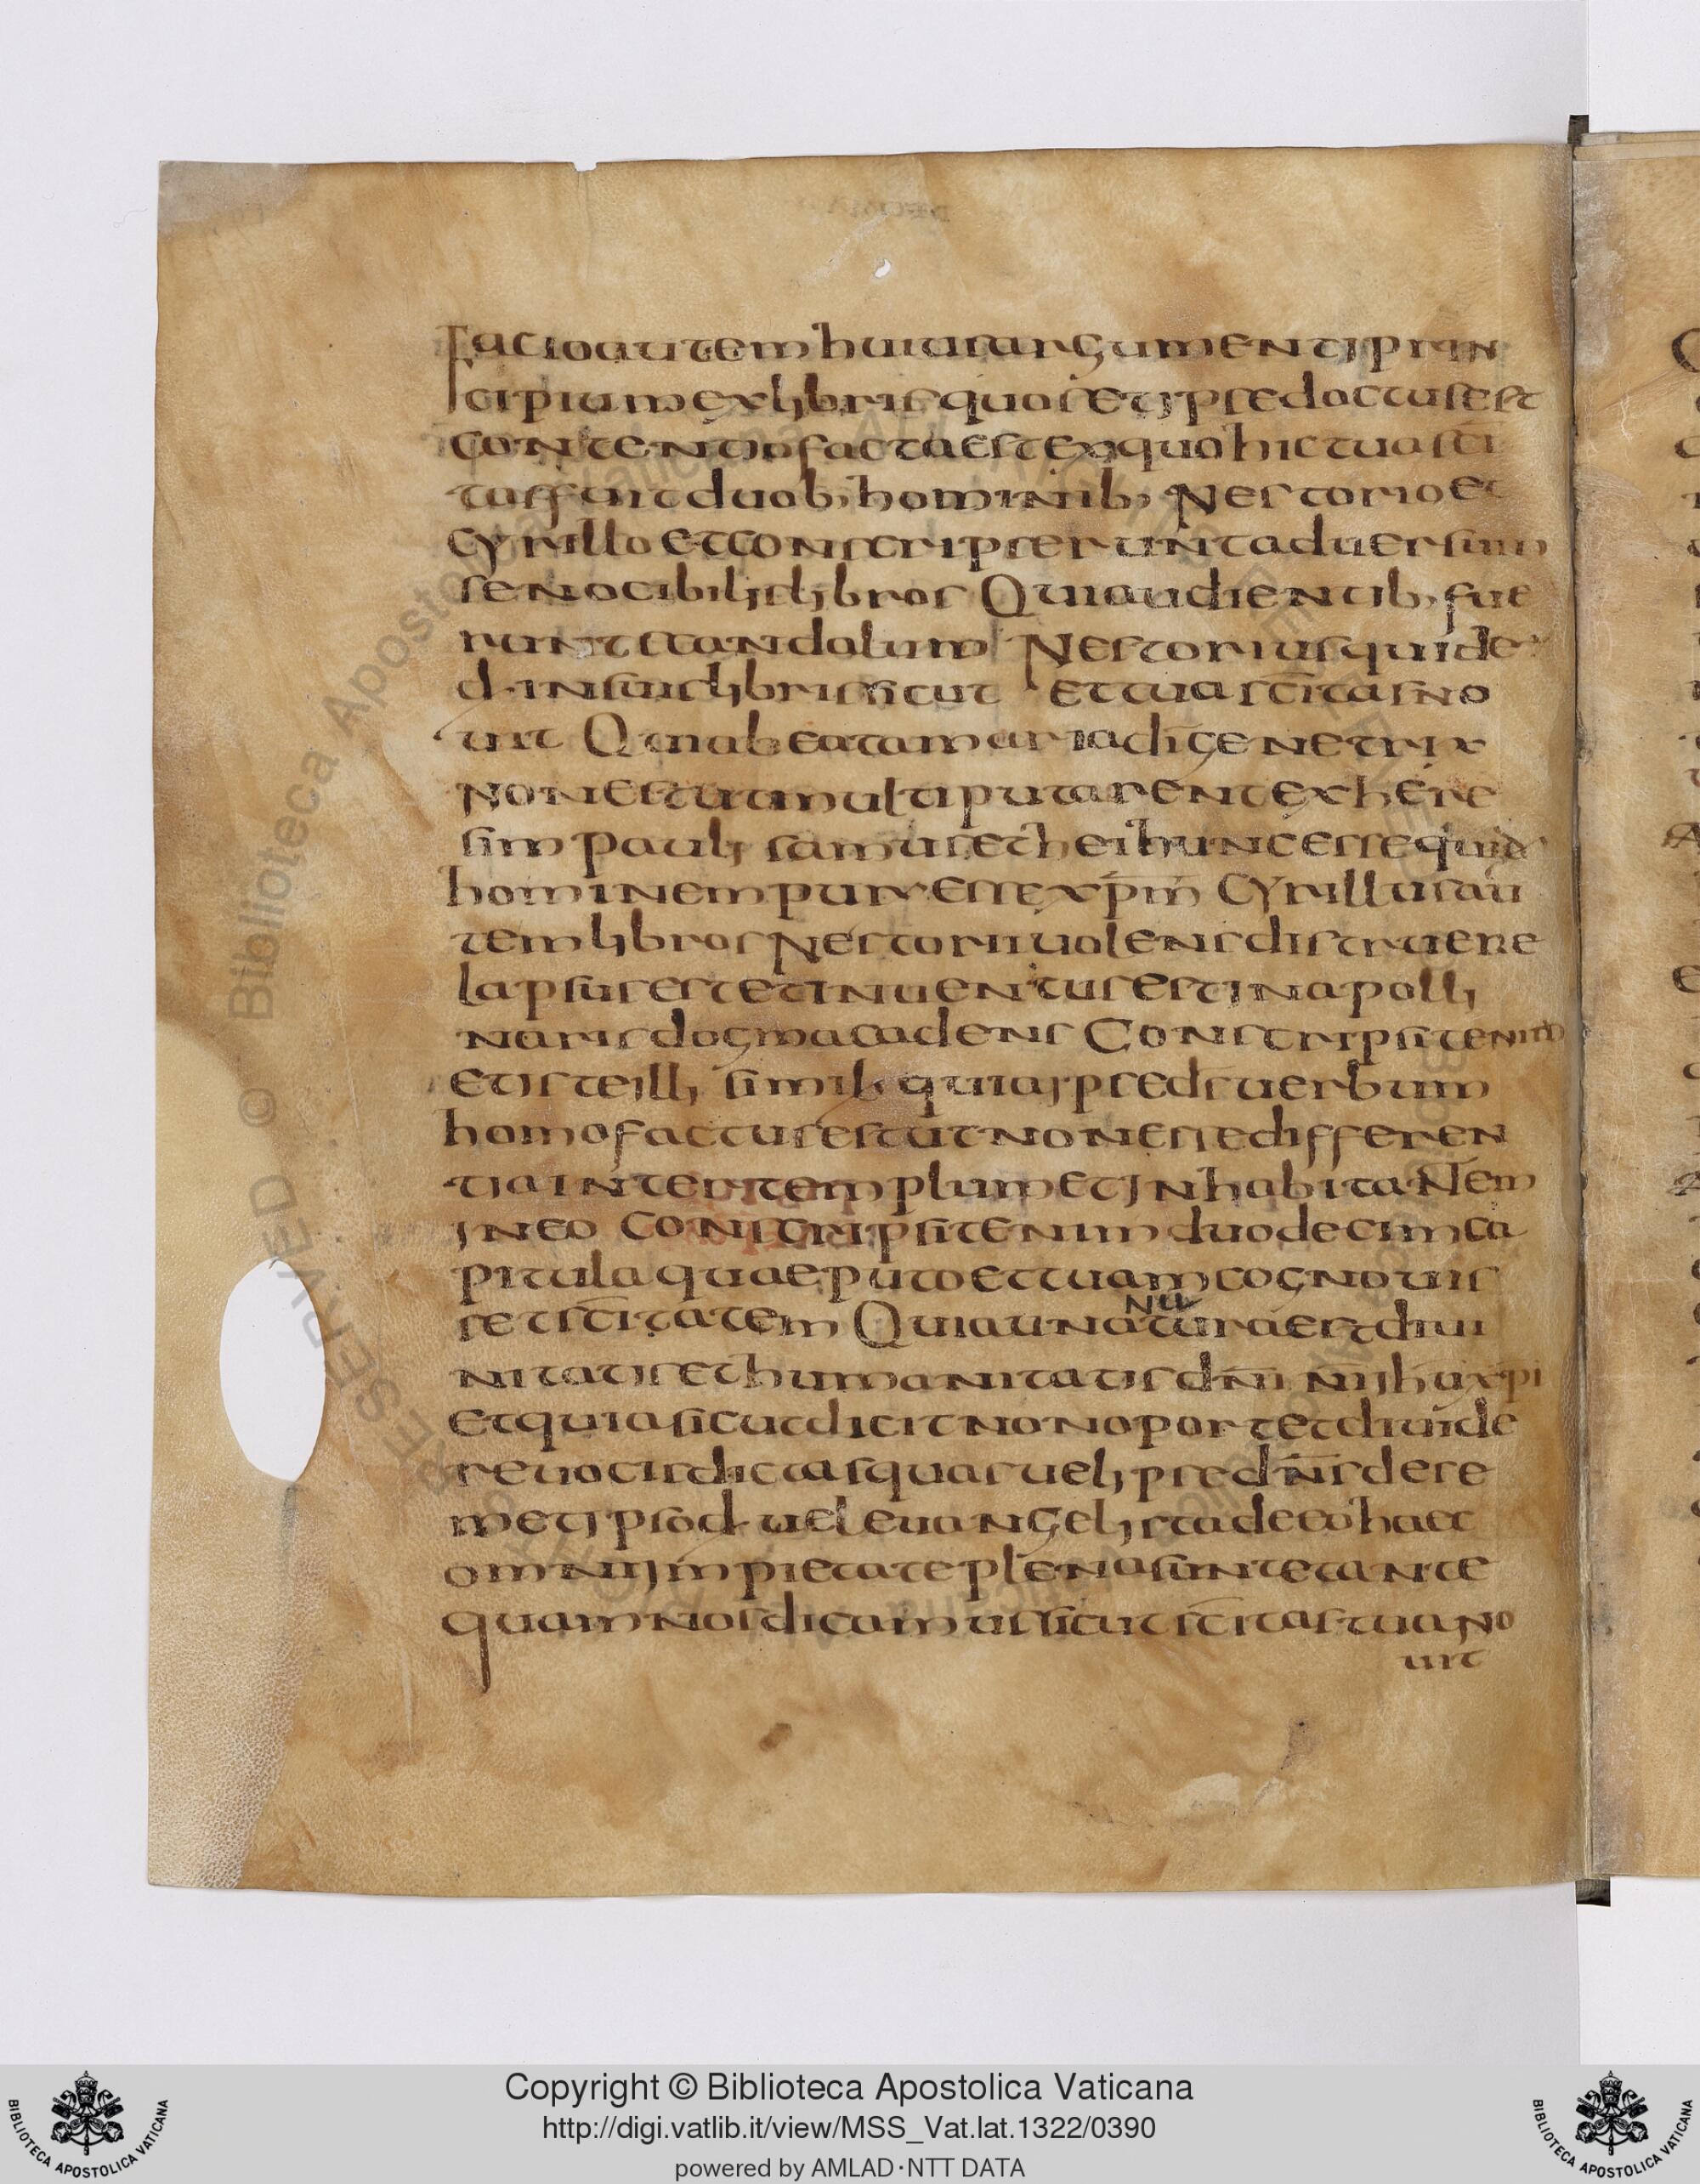 Facio autem huius argumenti prin
cipium ex libris quos et ipse doctus est
contentio facta est ex quo hic tua sc̄i
tas fuit duob; hominib; Nestorio et
Cyrillo et conscripserunt aduersum
se nocibilis libros Quia audientib; fue
runt scandalum Nestorius quide
d· in suis libris sicut et tua sc̄itas no
uit Quia beata maria dī genetrix
non est ut a multi putarent ex here
sim Pauli samusethei hunc esse qui d·
hominem purū esse xp̄m Cyrillus aū
tem libros Nestorii uolens distruere
lapsus est et inuentus est in apolli
naris dogma cadens Conscripsit enim
et iste illi simili quia ipse ds̄ uerbum
homo factus est ut non esse differen
tia inter templum et inhabitantem
in eo conscripsit enim duodecim ca
pitula quae puto et tuam cognouis
se sc̄itatem Quia una natura est diui
nitatis et humanitatis dn̄i n̄i ihu xpi
et quia sicut dicit non oportet diuide
re uocis dictas quas uel ipse dn̄s de se
metipso d· uel euangelista de eo haec
omni impietate plena sunt et ante
quam nos dicamus sicut sc̄itas tua no
uit
Copyright © Biblioteca Apostolica Vaticana
http://digi.vatlib.it/view/MSS_Vat.lat.1322/0390
powered by AMLAD·NTT DATA
BIBLIOTECA APOSTOLICA VATICANA
BIBLIOTECA APOSTOLICA VATICANA